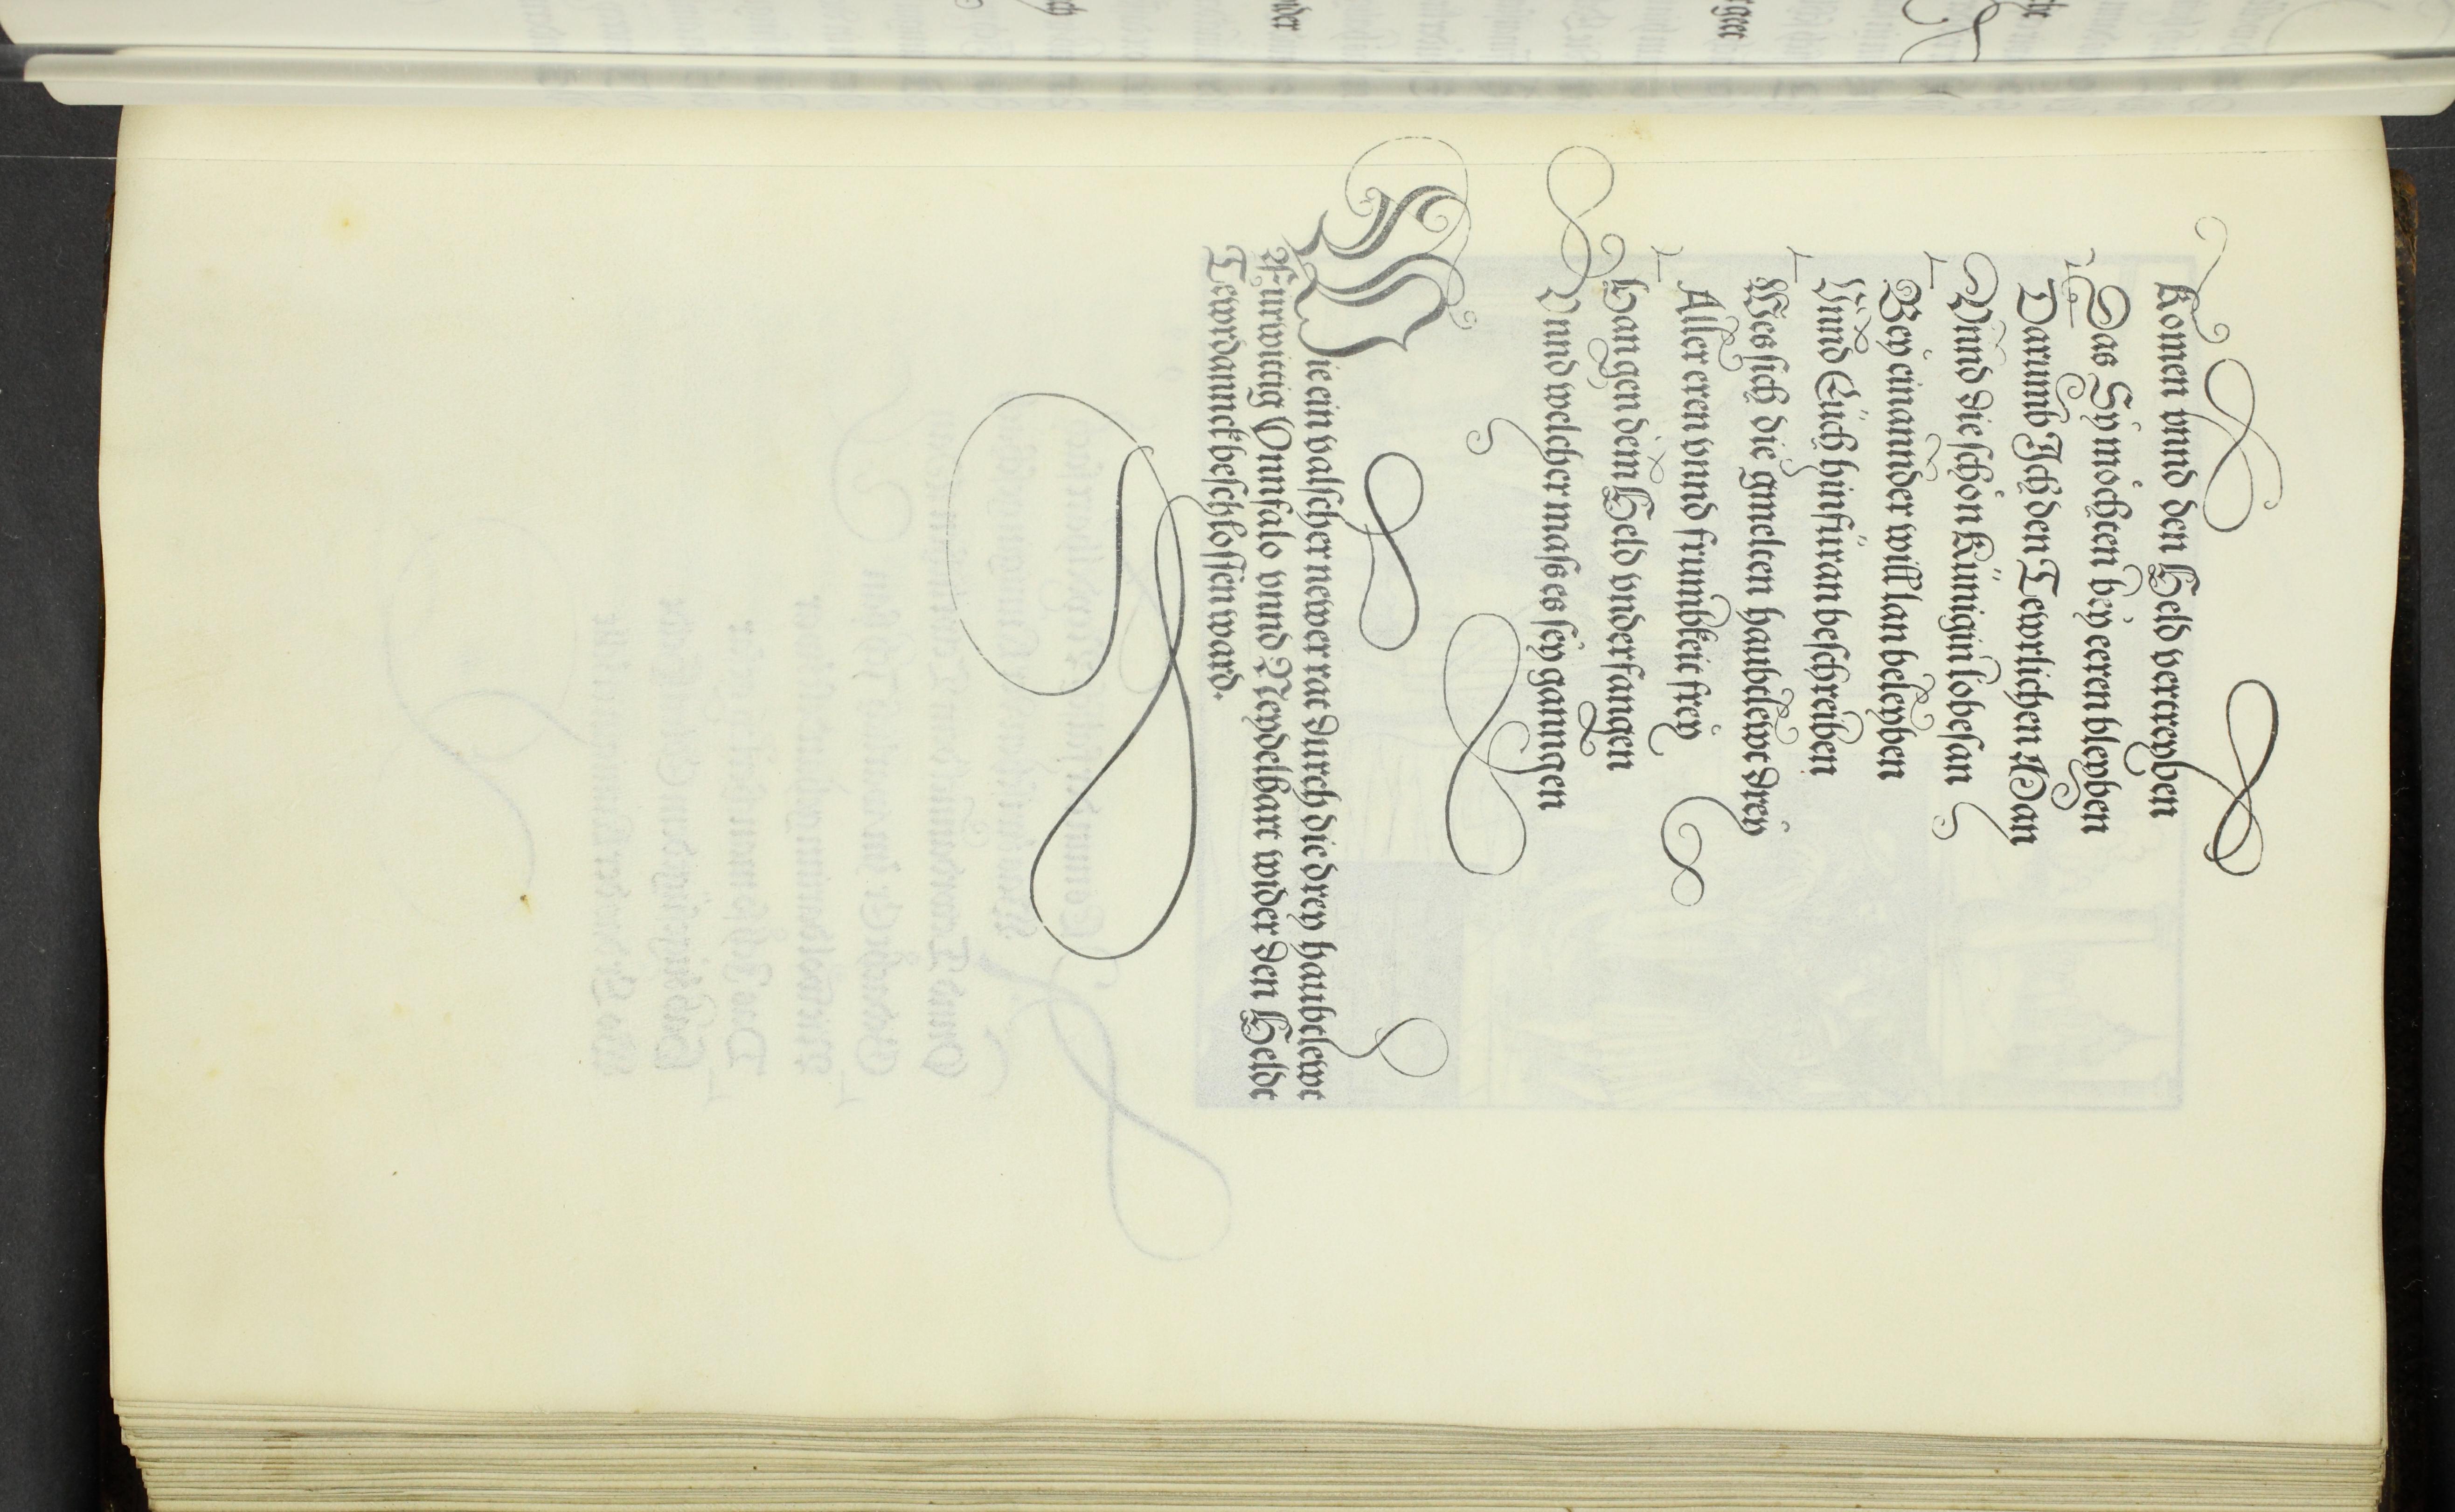 Komen vnnd den Held vertreyben
Das Sy möchten bey eeren bleyben
Darumb Ich den Tewrlichen Man
Vnnd die schön Künigin lobesan
Bey einannder will lan beleyben
Vnnd Eüch hinfüran beschreiben
Wes sich die gmelten haubtlewt drey
Aller eren vnnd frumbkeit frey
Hangen dem Held vnderfangen
Vnnd welcher mass es sey ganngen
Wie ein valscher newer rat durch die drey haubtlewt
Fürwittig Vnnfalo vnnd Neydelhart wider den Heldt
Tewrdannck beschlossen ward.